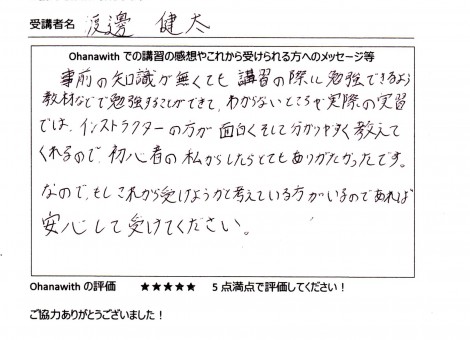 受講者名 渡邊 健太
Ohanawith での講習の感想やこれから受けられる方へのメッセージ等
事前の知識が無くても講習の際に勉強できるよう
教材などで勉強することができて、わからないところや実際の実習
では、インストラクターの方が面白くそして分かりやすく教えて
くれるので、初心者の私からしたらとてもありがたかったです。
なので、もしこれから受けようかと考えている方がいるのであれば
安心して受けてください。
Ohanawith の評価 ★★★★★ 5 点満点で評価してください！
ご協力ありがとうございました！